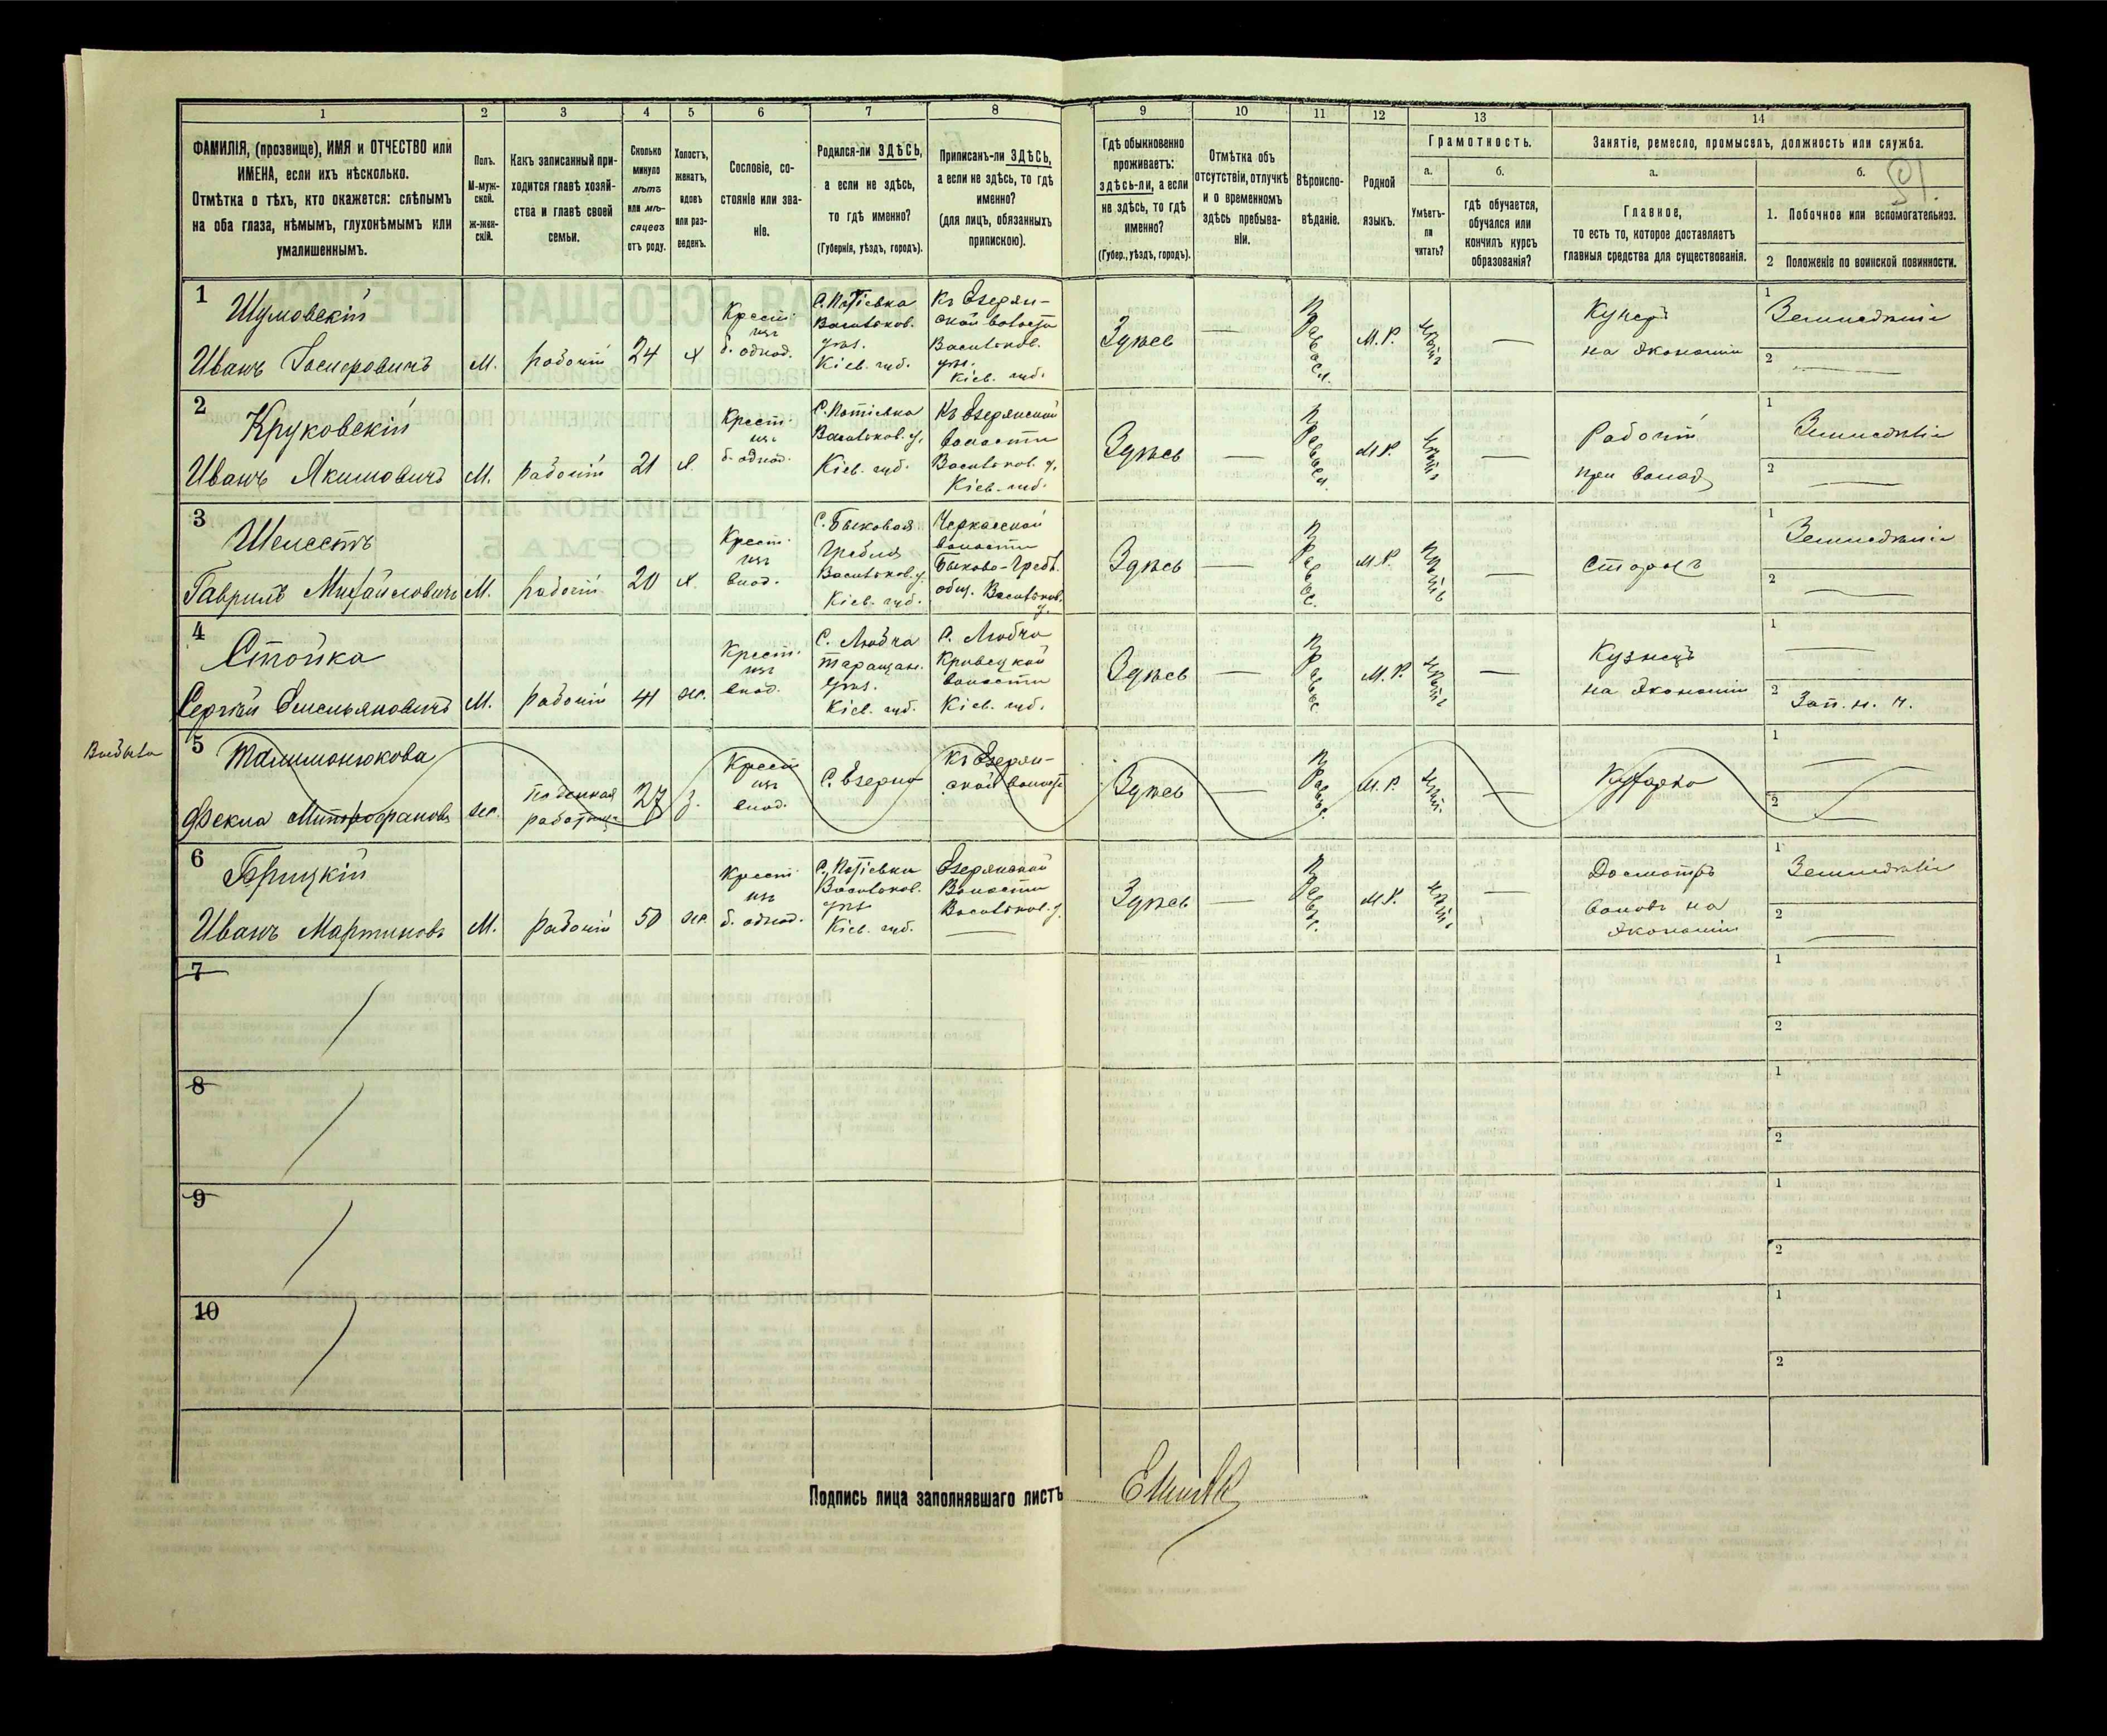 1 2 3 4 5 6 7 8 9 10 11 12 13 14
ФАМИЛІЯ, (прозвище), ИМЯ и ОТЧЕСТВО или
ИМЕНА, если ихъ нѣсколько.
Отмѣтка о тѣхъ, кто окажется: слѣпымъ
на оба глаза, нѣмымъ, глухонѣмымъ или
умалишеннымъ.
Полъ.
М-муж-
ской.
Ж-жен-
скій.
Какъ записанный при-
ходится главѣ хозяй-
ства и главѣ своей
семьи.
Сколько
минуло
лѣтъ
или мѣ-
сяцевъ
отъ роду.
Холостъ,
женатъ,
вдовъ
или раз-
веденъ.
Сословіе, со-
стояніе или зва-
ніе.
Родился-ли ЗДѢСЬ,
а если не здѣсь,
то гдѣ именно?
(Губернія, уѣздъ, городъ).
Приписанъ-ли ЗДѢСЬ,
а если не здѣсь, то гдѣ
именно?
(для лицъ, обязанныхъ
припискою).
Гдѣ обыкновенно
проживаетъ:
здѣсь-ли, а если
не здѣсь, то гдѣ
именно?
(Губер., уѣздъ, городъ).
Отмѣтка объ
отсутствіи, отлучкѣ
и о временномъ
здѣсь пребыва-
ніи.
Вѣроиспо-
вѣданіе.
Родной
языкъ.
Грамотность.
а.
Умѣетъ-
ли
читать?
б.
гдѣ обучается,
обучался или
кончилъ курсъ
образованія?
Занятіе, ремесло, промыселъ, должность или служба.
а.
Главное,
то есть то, которое доставляетъ
главныя средства для существованія.
б.
1. Побочное или вспомогательное.
2 Положеніе по воинской повинности.
1
Шумовскій
Иванъ
М. рабочій 24 х
Крест.
изъ
б. однод.
Васильков.
уѣз.
Кіев. губ.
Къ Езерян-
ской волости
Васильков.
уѣз.
Кіев. губ.
Здѣсь — М. Р. —
на экономіи
1 Земледѣліе
2 —
2
Круковскій
Иванъ Якимовичъ
М. рабочій 21 х.
Крест.
изъ
б. однод.
Васильков. у.
Кіев. губ.
Къ Езерянской
волости
Васильков. у.
Кіев. губ.
Здѣсь — М. Р. —
Рабочій
при
1 Земледѣліе
2 —
3
Шелестъ
Гаврилъ Михайловичъ
М. рабочій 20 х.
Крест.
изъ
влад.
С. Быковая
Гребля
Васильков. у.
Кіев. губ.
волости
Быково-Греб.
общ. Васильков.
у.
Здѣсь — М. Р. —
Сторожъ
1 Земледѣліе
2 —
4
Стойка
Сергѣй Емельяновичъ
М. рабочій 41 ж.
Крест.
изъ
влад.
С. Любча
Таращан.
уѣз.
Кіев. губ.
С. Любча
волости
Кіев. губ.
Здѣсь — М. Р. —
Кузнецъ
на экономіи
1 —
2 Зап. н. ч.
Выбыла
5
Фекла Митрофанова
ж.
Поденная
работница
27 з.
Крест
изъ
влад.
С. Езерно
Къ Езерян-
ской волости
Здѣсь — М. Р. —
Кухарка
1 —
2 —
6
Брицкій
Иванъ Мартиновъ
М. рабочій 50 ж.
Крест
изъ
б. однод.
Васильков.
уѣз
Кіев. губ.
Езерянской
Волости
Васильков. у.
Здѣсь — М. Р. —
Досмотръ
воловъ на
экономіи
1 Земледѣліе
2 —
7
1
2
8
1
2
9
1
2
10
1
2
Подпись лица заполнявшаго листъ